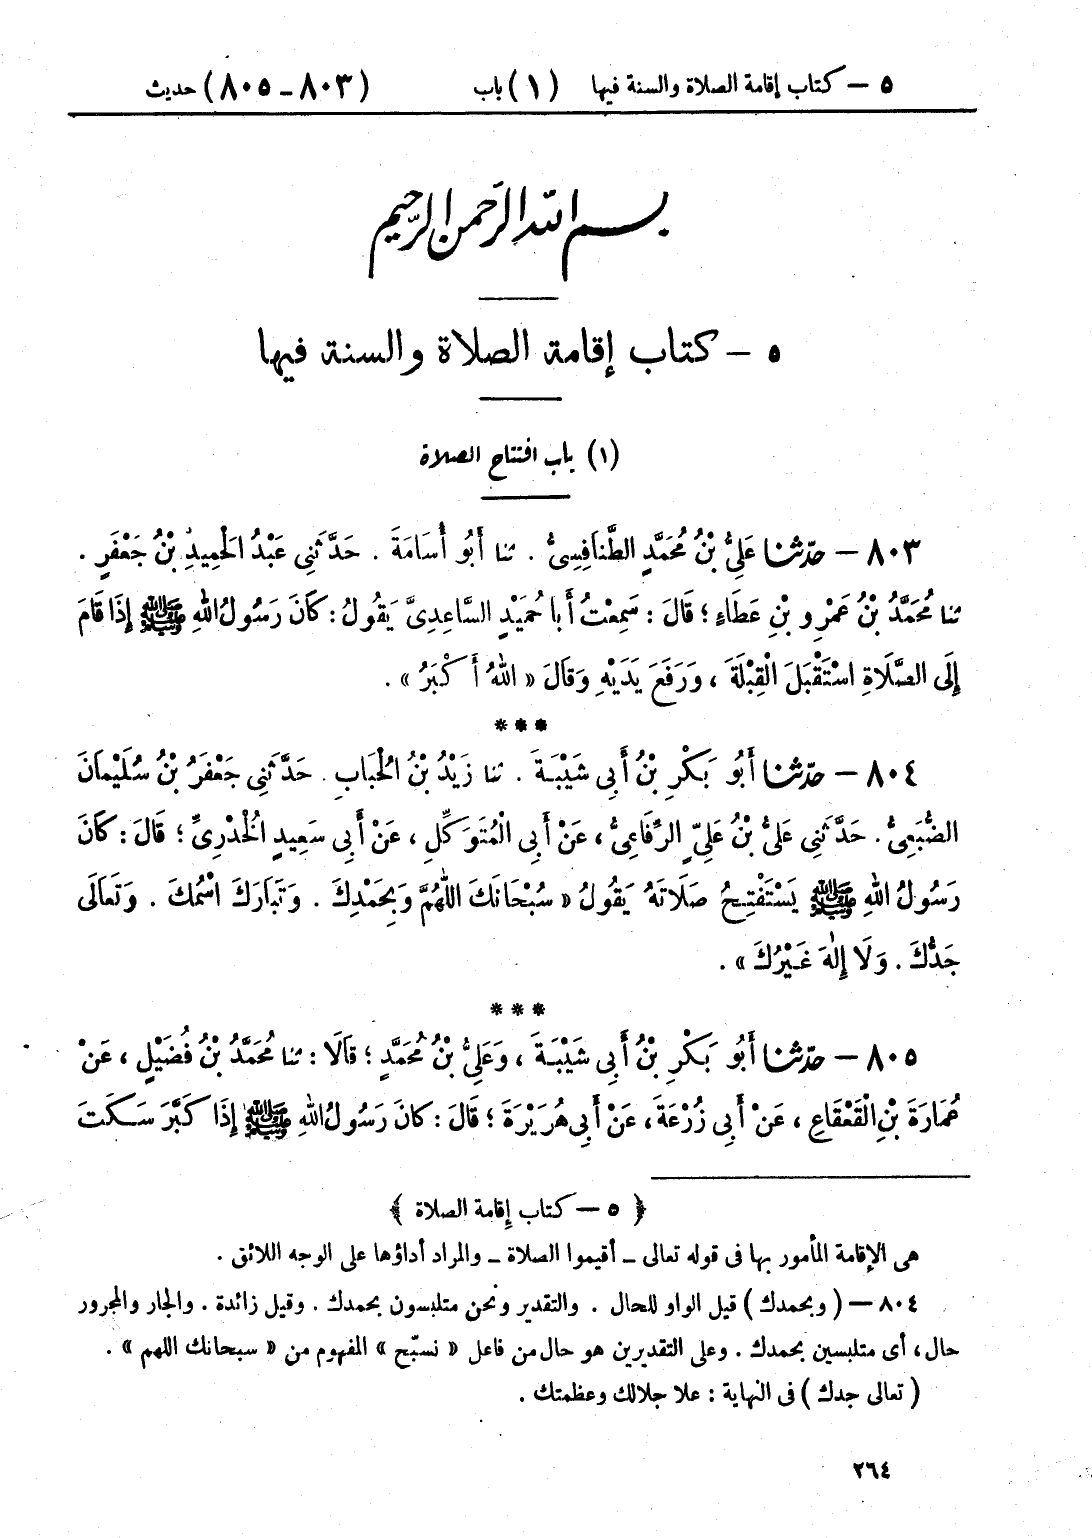 ٥ – كتاب إقامة الصلاة والسنة فيها (١) باب (٨٠٣ – ٨٠٥) حديث
بسم الله الرحمن الرحيم
٥ – كتاب إقامة الصلاة والسنة فيها
(١) باب افتتاح الصلاة
٨٠٣ – حدّثنا عَلِيُّ بْنُ مُحَمَّدٍ الطَّنَافِسِىُّ . ثنا أَبُو أُسَامَةَ . حَدَّثَنِى عَبْدُ الْحَمِيدِ بْنُ جَعْفَرٍ .
ثنا مُحَمَّدُ بْنُ عَمْرِو بْنِ عَطَاءٍ ؛ قَالَ : سَمِعْتُ أَبا حُمَيْدٍ السَّاعِدِىَّ يَقُولُ : كَانَ رَسُولُ اللهِ ﷺ إِذَا قَامَ
إِلَى الصَّلَاةِ اسْتَقْبَلَ الْقِبْلَةَ ، وَرَفَعَ يَدَيْهِ وَقَالَ « اللهُ أَكْبَرُ » .
***
٨٠٤ – حدّثنا أَبُو بَكْرِ بْنُ أَبِى شَيْبَةَ . ثنا زَيْدُ بْنُ الْحُبَابِ . حَدَّثَنِى جَعْفَرُ بْنُ سُلَيْمانَ
الضُّبَعِىُّ . حَدَّثَنِى عَلِىُّ بْنُ عَلِيٍّ الرِّفَاعِىُّ ، عَنْ أَبِى الْمُتَوَكِّلِ ، عَنْ أَبِى سَعِيدٍ الْخُدْرِىِّ ؛ قَالَ : كَانَ
رَسُولُ اللهِ ﷺ يَسْتَفْتِحُ صَلَاتَهُ يَقُولُ « سُبْحَانَكَ اللّٰهُمَّ وَبِحَمْدِكَ . وَتَبَارَكَ اسْمُكَ . وَتَعَالَى
جَدُّكَ . وَلَا إِلٰهَ غَيْرُكَ » .
***
٨٠٥ – حدّثنا أَبُو بَكْرِ بْنُ أَبِى شَيْبَةَ ، وَعَلِىُّ بْنُ مُحَمَّدٍ ؛ قَالَا : ثنا مُحَمَّدُ بْنُ فُضَيْلٍ ، عَنْ
عُمَارَةَ بْنِ الْقَعْقَاعِ ، عَنْ أَبِى زُرْعَةَ ، عَنْ أَبِى هُرَيْرَةَ ؛ قَالَ : كَانَ رَسُولُ اللهِ ﷺ إِذَا كَبَّرَ سَكَتَ
﴿ ٥ – كتاب إقامة الصلاة ﴾
هى الإقامة المأمور بها فى قوله تعالى – أقيموا الصلاة – والمراد أداؤها على الوجه اللائق .
٨٠٤ – ( وبحمدك ) قيل الواو للحال . والتقدير ونحن متلبسون بحمدك . وقيل زائدة . والجار والمجرور
حال ، أى متلبسين بحمدك . وعلى التقديرين هو حال من فاعل « نسبّح » المفهوم من « سبحانك اللهم » .
( تعالى جدك ) فى النهاية : علا جلالك وعظمتك .
٢٦٤